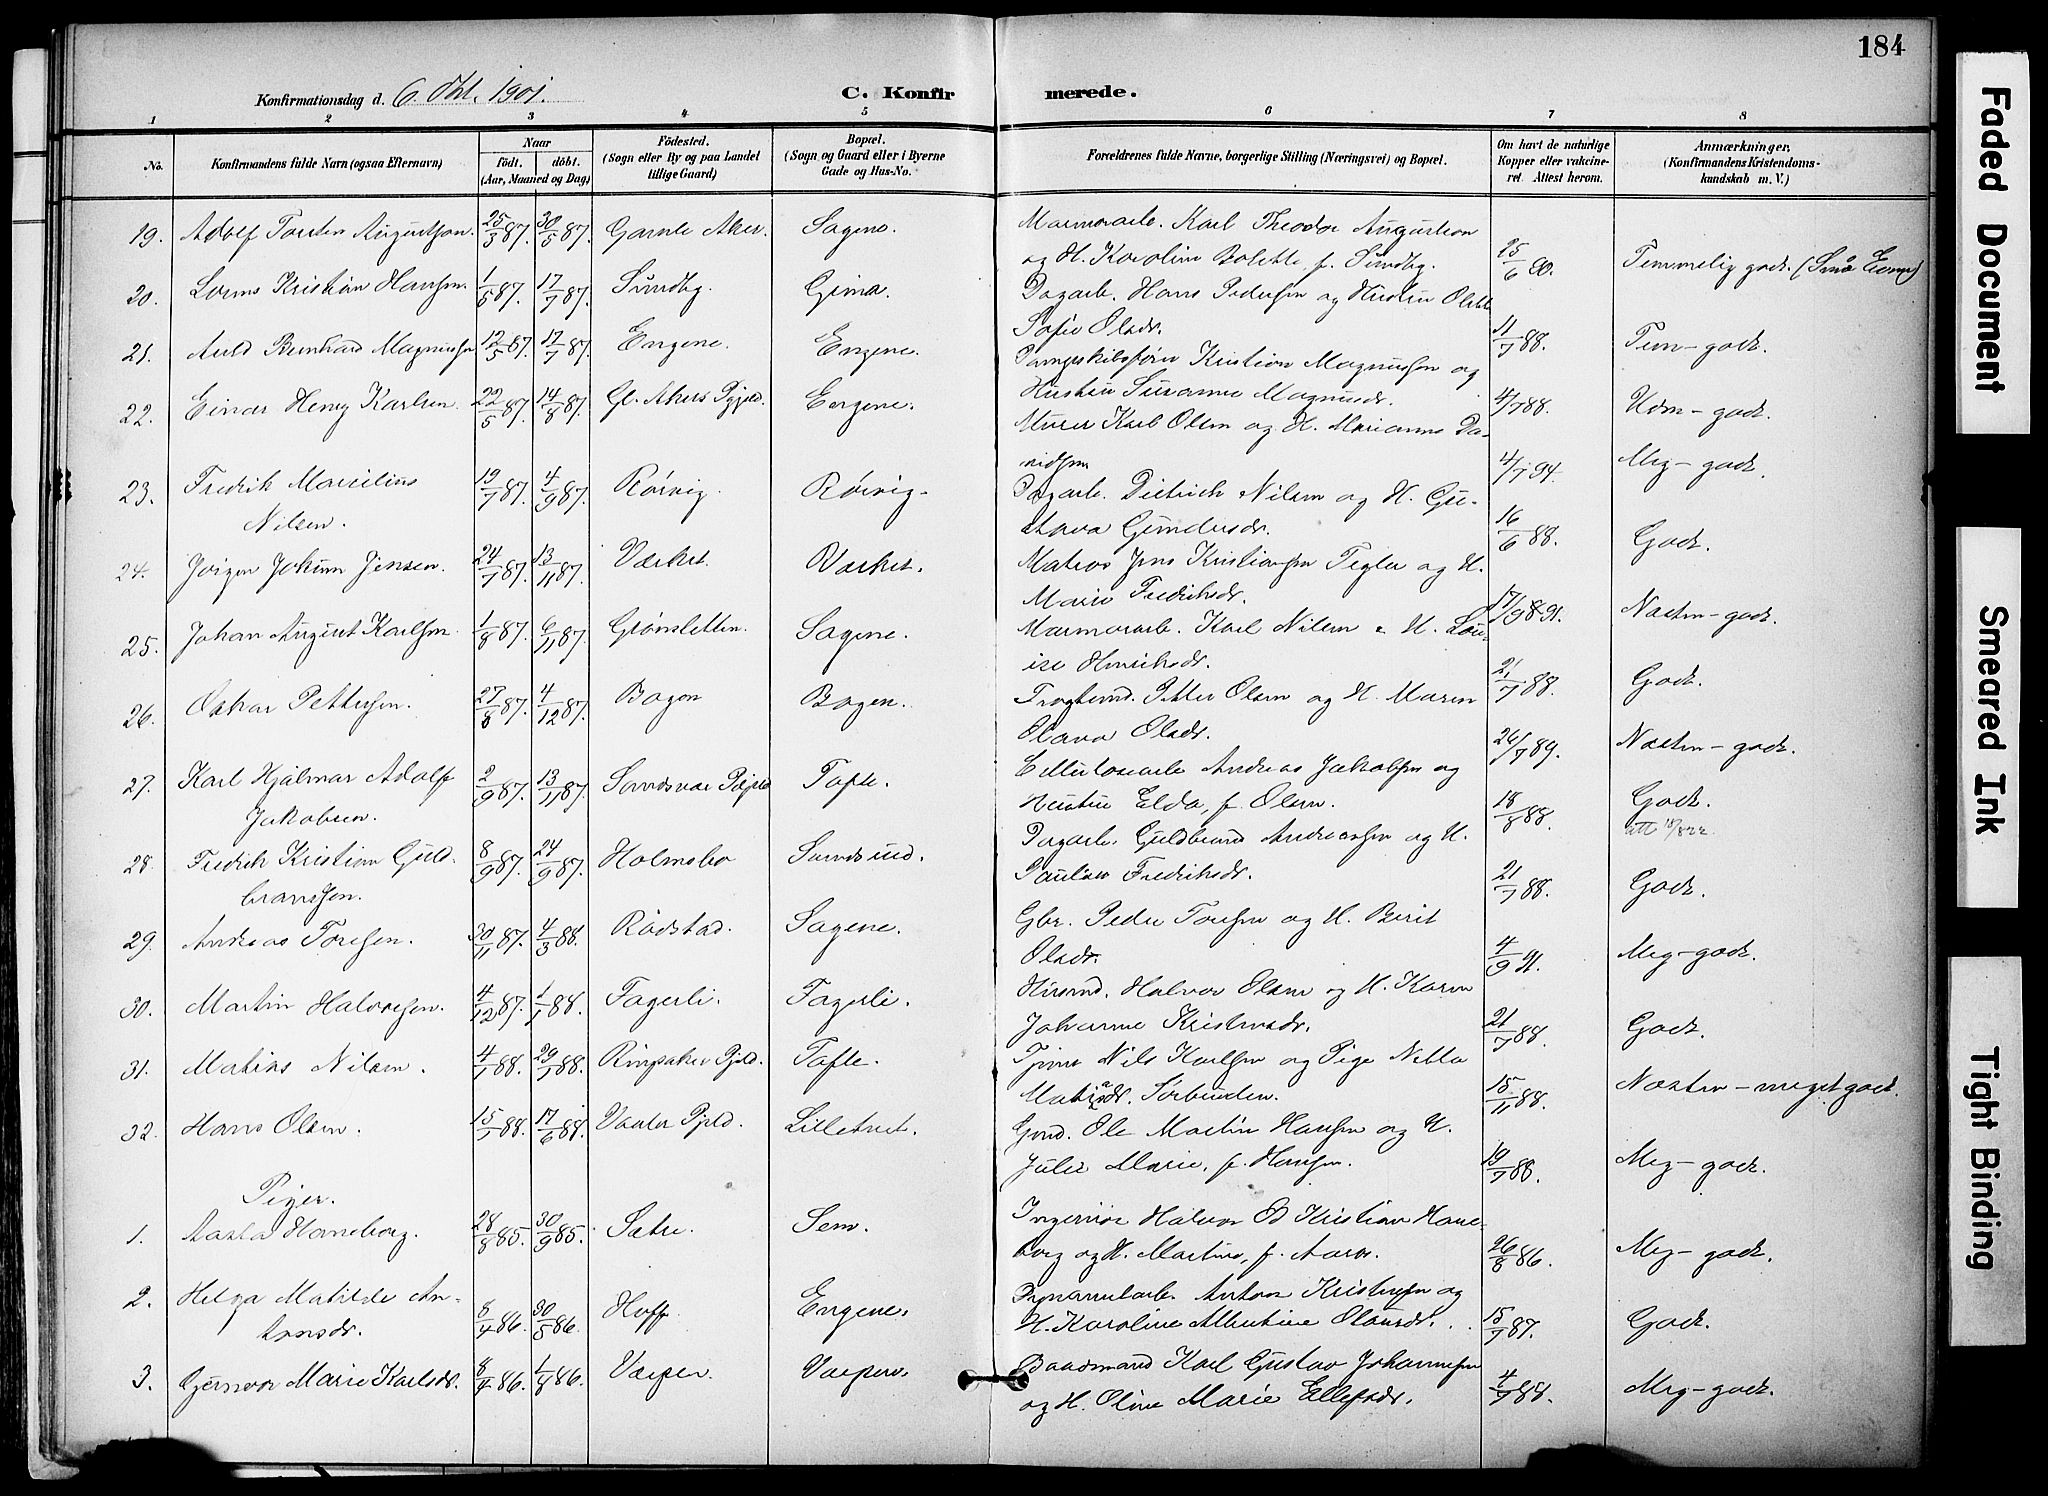 184
Konfirmationsdag d. 6. Okt. 1901. C. Konfirmerede.
1 2 3 4 5 6 7 8
No. Konfirmandens fulde Navn (ogsaa Efternavn) Naar født, døbt. (Aar, Maaned og Dag) Fødested. (Sogn eller By og paa Landet tillige Gaard) Bopæl. (Sogn og Gaard eller i Byerne Gade og Hus-No. Forældrenes fulde Navne, borgerlige Stilling (Næringsvei) og Bopæl. Om havt de naturlige Kopper eller vakcineret. Attest herom. Anmærkninger, (Konfirmandens Kristendomskundskab m. V.)
19. Adolf Torsten Augustson 25/3 87. 30/5 87. Gamle Aker. Sagene. Marmorarb. Karl Theodor Augustson
og H. Karoline Bolette f. Sundby. 25/6 Temmelig godt.
20. Kristian Hansen 1/5 87. 17/7 87. Sundby. Dagarb. Hans Pedersen og Hustru
Sofie Olsdr. 11/7 88. Tem-godt.
21. Bernhard Magnussen 12/5 87. 17/7 87. Engene. Engene. Kristian Magnussen og
Hustru Susanne Magnusdr. 4/7 88. Udm-godt.
22. Einar Henry Karlsen. 22/5 87. 14/8 87. Gl. Akers Pgjeld. Engene. Murer Karl Olsen og H. Marianne Da-
vidsen 4/7 94. Meg-godt.
23. Fredrik Marcelius
Nilsen. 19/7 87. 4/9 87. Rørvig. Rørvig. Dagarb. Dietrich Nilsen og H. Gu-
stava Gundersdr. 16/6 88. Godt.
24. Jørgen Johan Jensen. 24/7 87. 13/11 87. Værket. Værket. Matros Jens Kristiansen Tegler og H.
Marie Fredriksdr. Næsten-godt.
25. Johan August Karlsen. 1/8 87. 6/11 87. Grønsletten. Sagene. Marmorarb. Karl Nilsen & H. Lou-
ise Henriksdr. 21/7 88. Godt.
26. Oskar Pettersen. 27/8 87. 4/12 87. Bogen Bogen. Petter Olsen og H. Maren
Olava Olsdr. 26/7 89. Næsten-godt.
27. Karl Hjalmar Adolf
Jakobsen. 2/9 87. 13/11 87. Sandsvær Pgjeld Tofte. Cellulosearb Andreas Jakobsen og
Hustru Elda, f. Olsen. 18/8 88. Godt.
28. Fredrik Kristian Guld-
brandsen. 8/9 87. 24/9 87. Holmsbo Sandsund. Dagarb. Guldbrand Andreassen og H.
Pauline Fredriksdr. 21/7 88. Godt.
29. Andreas Toresen. 30/11 87. 4/3 88. Rødstad. Sagene. Gbr. Peder Toresen og H. Berit
Olsdr. 4/9 Meg-godt.
30. Martin Halvorsen. 4/12 87. 1/1 88. Fagerli. Fagerli. Husmd. Halvor Olsen og H. Karen
Johanne Kristensdr. 21/7 88. Godt.
31. Matias Nilsen. 4/1 88. 29/1 88. Ringsaker Pgjld. Tofte. Tjener Nils Karlsen og Pige Netta
Matisdr. Sørbunden. 15/11 88. Næsten-meget godt.
32. Hans Olsen. 15/1 88. 17/6 88. Vaaler Pgjld. Lilletveit. Gmd. Ole Martin Hansen og H.
Julie Marie, f. Hansen. 19/7 88. Meg-godt.
Piger.
1. Aasta Haneborg. 28/8 85. 30/9 85. Sætre. Sem. Ingeniør Halvor O Kristian Hane-
borg og H. Martine, f. Aarr. 26/8 86. Meg-godt.
2. Helga Matilde An-
tonsdr. 8/4 86. 30/5 86. Hoff. Engene. Dynamitarb. Anton Kristensen og
H. Karoline Albertine Olausdr. 15/7 87. Godt.
3. Gunvor Marie Karlsdr. 8/4 86. 1/8 86. Værpen. Værpen. Baadsmand Karl Gustav Johannesen
og H. Oline Marie Ellefsdr. 4/7 88. Meg-godt.
Faded Document
Smeared Ink
Tight Binding